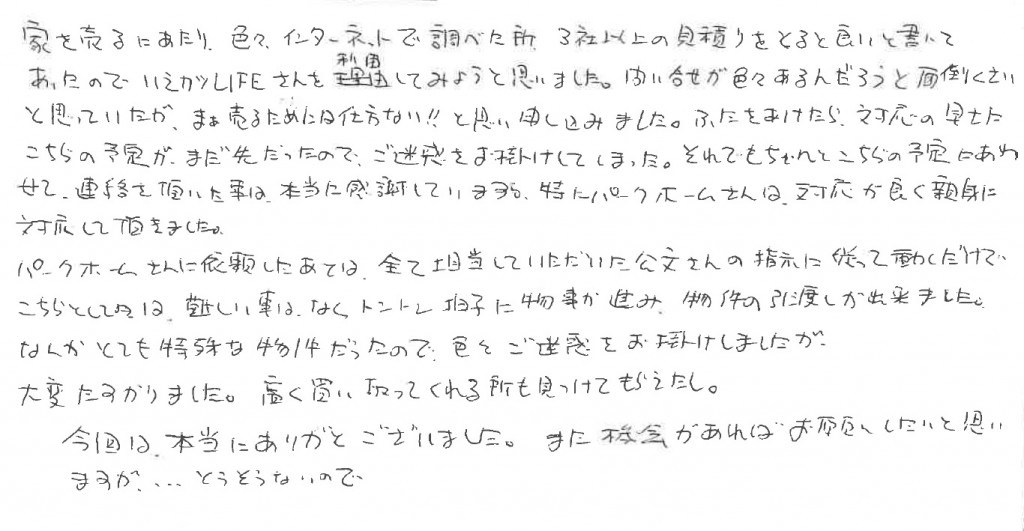 家を売るにあたり、色々、インターネットで調べた所、3社以上の見積りをとると良いと書いて
あったので いえカツLIFEさんを 利用してみようと思いました。問い合せが色々あるんだろうと面倒くさい
と思っていたが、まぁ売るためには仕方ない!!と思い申し込みました。ふたをあけたら、対応の早さに
こちらの予定が、まだ先だったので、ご迷惑をお掛けしてしまった。それでもちゃんとこちらの予定にあわ
せて、連絡を頂いた事は、本当に感謝しています。特にパークホームさんは、対応が良く親身に
対応して頂きました。
パークホームさんに依頼したあとは、全て担当していただいた公文さんの指示に従って動くだけで
こちらとしては、難しい事は、なく、トントン拍子に物事が進み、物件の引渡しが出来ました。
なんかとても特殊な物件だったので、色々ご迷惑をお掛けしましたが、
大変たすかりました。高く買い取ってくれる所も見つけてもらえたし。
今回は、本当にありがとうございました。また機会があればお願いしたいと思い
ますが、... そうそうないので